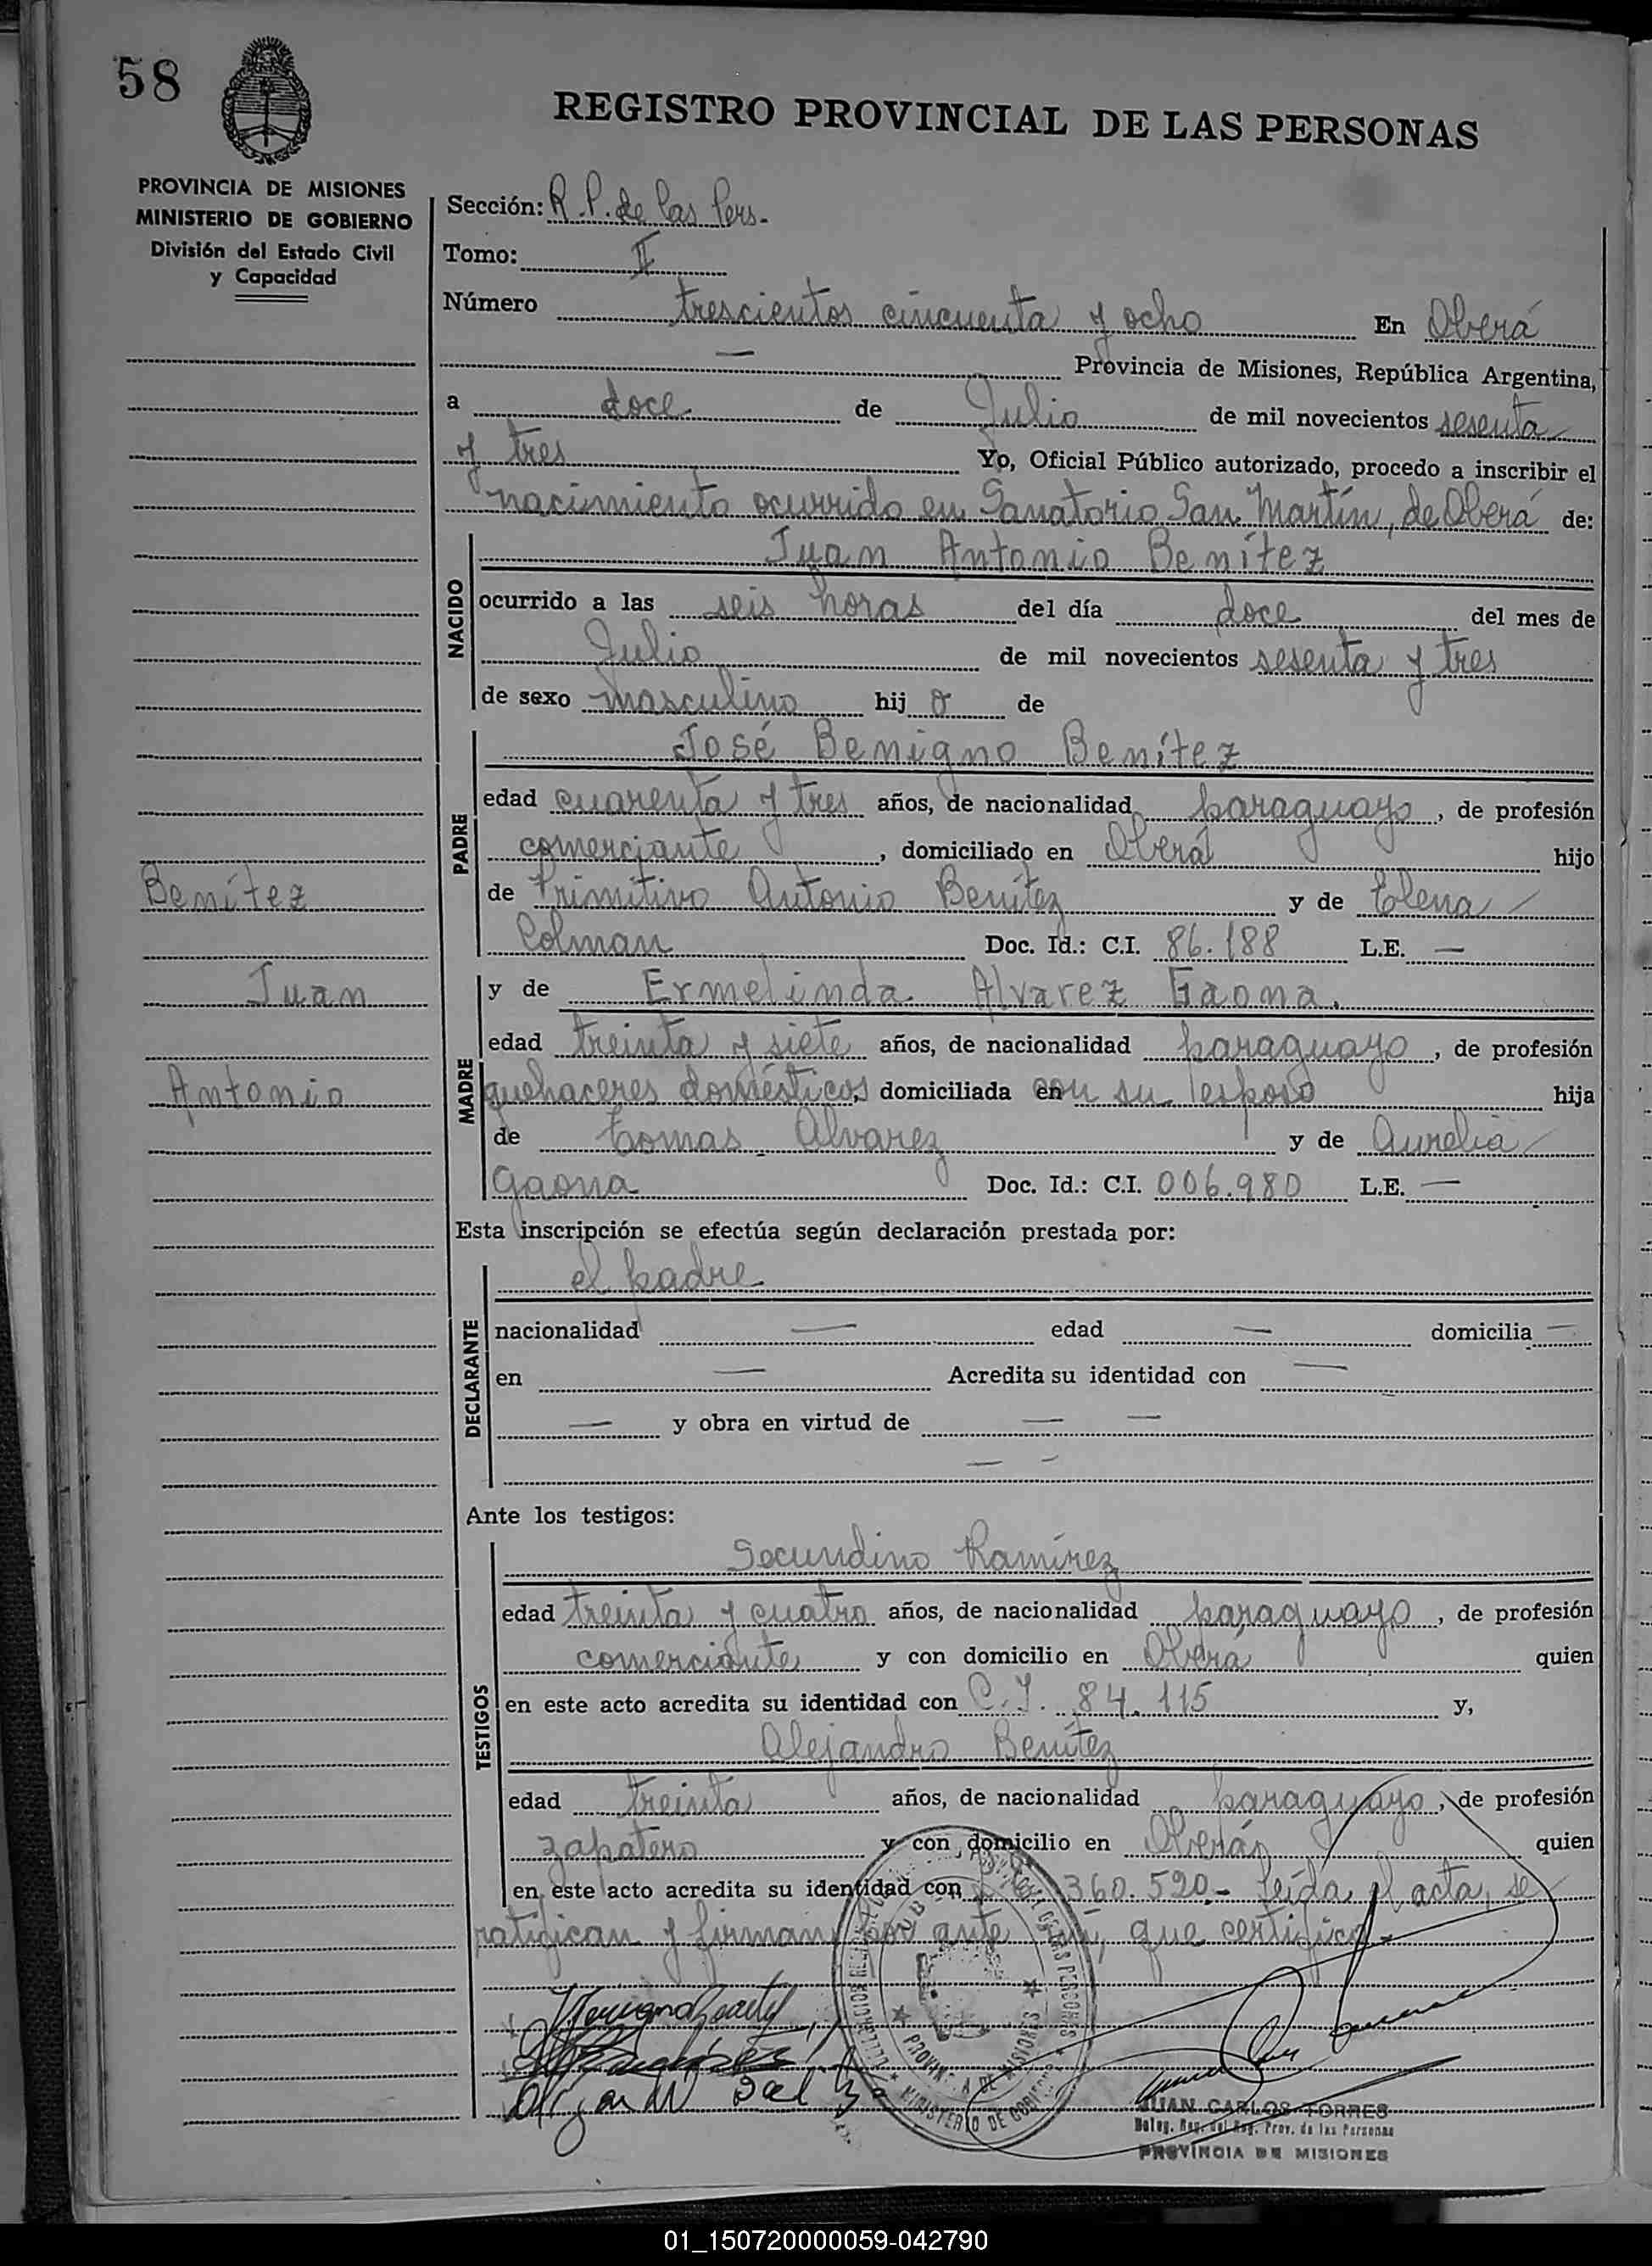 58
REGISTRO PROVINCIAL DE LAS PERSONAS
PROVINCIA DE MISIONES
MINISTERIO DE GOBIERNO
División del Estado Civil
y Capacidad
Sección: R.P. de las Pers.
Tomo: II
Número trescientos cincuenta y ocho En Oberá
— Provincia de Misiones, República Argentina,
a doce de Julio de mil novecientos sesenta
y tres Yo, Oficial Público autorizado, procedo a inscribir el
nacimiento ocurrido en Sanatorio San Martín, de Oberá de:
NACIDO
Juan Antonio Benítez
ocurrido a las seis horas del día doce del mes de
Julio de mil novecientos sesenta y tres
de sexo masculino hijo de
PADRE
José Benigno Benítez
edad cuarenta y tres años, de nacionalidad paraguayo, de profesión
comerciante, domiciliado en Oberá hijo
de Primitivo Antonio Benítez y de Elena
Colman Doc. Id.: C.I. 86.188 L.E. —
Benítez
Juan
Antonio
MADRE
y de Ermelinda Alvarez Gaona.
edad treinta y siete años, de nacionalidad paraguayo, de profesión
quehaceres domésticos, domiciliada en con su esposo hija
de Tomas Alvarez y de Aurelia
Gaona Doc. Id.: C.I. 006.980 L.E. —
Esta inscripción se efectúa según declaración prestada por:
DECLARANTE
el padre
nacionalidad — edad — domicilia —
en — Acredita su identidad con —
— y obra en virtud de — —
— —
Ante los testigos:
TESTIGOS
Secundino Ramírez
edad treinta y cuatro años, de nacionalidad paraguayo, de profesión
comerciante y con domicilio en Oberá quien
en este acto acredita su identidad con C.I. 84.115 y,
Alejandro Benítez
edad treinta años, de nacionalidad paraguayo, de profesión
zapatero y con domicilio en Oberá quien
en este acto acredita su identidad con 360.520.- Leída el acta, se
ratifican y firman por ante mí, que certifico.-
PROVINCIA DE MISIONES
MINISTERIO DE GOBIERNO
JUAN CARLOS TORRES
Prov. de las Personas
PROVINCIA DE MISIONES
01_150720000059-042790